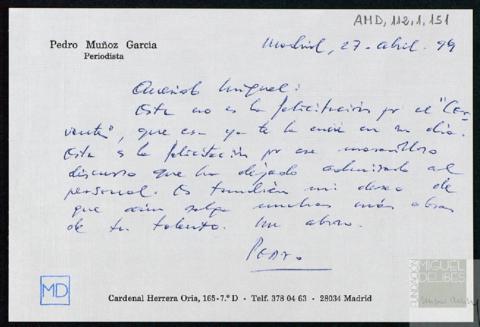 AMD, 112, 1, 151
Pedro Muñoz García
Periodista
Madrid, 27-abril-94
Querido Miguel:
Esta no es la felicitación por el "Cer-
vantes", que esa ya te la envié en su día.
Esta es la felicitación por ese maravilloso
discurso que ha dejado admirado al
personal. Es también mi deseo de
que aún salga muchas más obras
de tu talento. Un abrazo.
Pedro
MD
Cardenal Herrera Oria, 165-7.º D - Telf. 378 04 63 - 28034 Madrid
FUNDACIÓN
MIGUEL
DELIBES